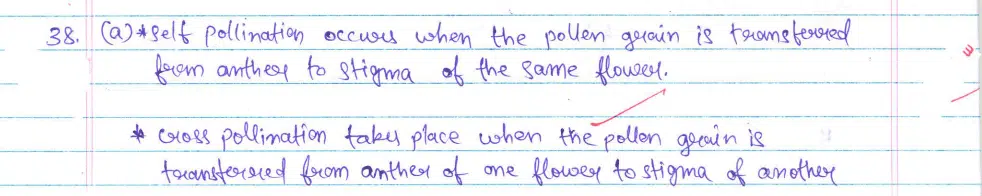 38. (a) * Self pollination occurs when the pollen grain is transferred
from anther to stigma of the same flower.
* cross pollination takes place when the pollen grain is
transferred from anther of one flower to stigma of another